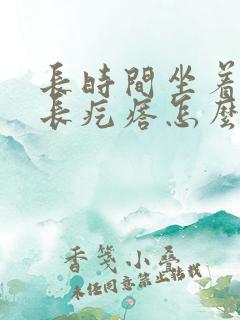 長時間坐着
長疙瘩怎麼
香箋小疊
未任同意禁止转载